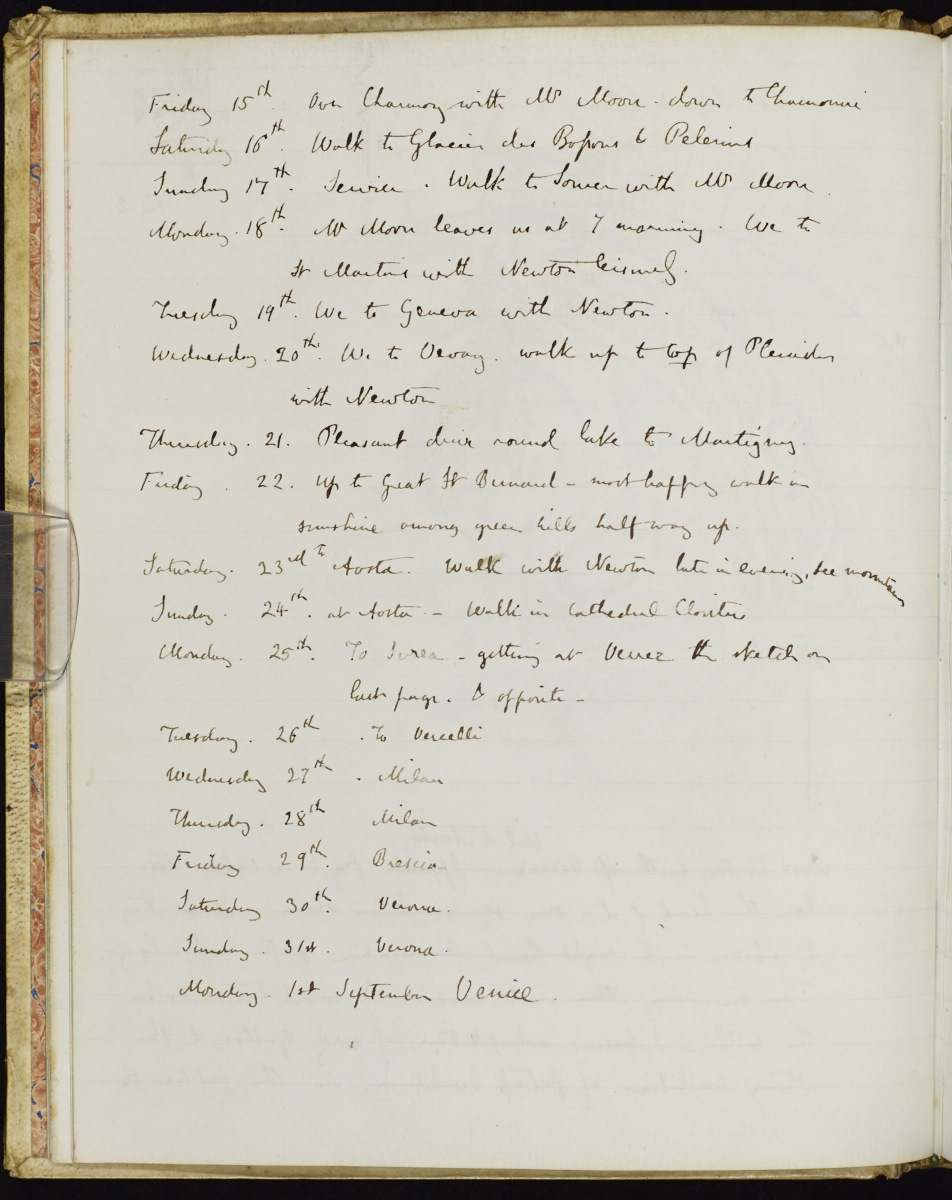 Friday 15th. Over Charmoz with Mr Moore. down to Chamouni
Saturday 16th. Walk to Glacier des Bossons & Pelerins
Sunday 17th. Service. Walk to with Mr Moore.
Monday. 18th. Mr Moore leaves us at 7 morning. We to
St Martins with Newton
Tuesday 19th. We to Geneva with Newton.
Wednesday. 20th. We to Vevay. walk up to top of Pleiades
with Newton
Thursday. 21. Pleasant drive round lake to Martigny.
Friday. 22. up to Great St Bernard - most happy walk in
sunshine among green hills half way up.
Saturday. 23rd to Aosta. Walk with Newton late in evening, see mountains
Sunday. 24th. at Aosta - Walk in Cathedral Cloisters
Monday. 25th. To Ivrea - getting at Verrez the sketch on
last page. & opposite -
Tuesday. 26th. To Vercelli
Wednesday 27th. Milan
Thursday. 28th Milan
Friday 29th. Brescia
Saturday 30th. Verona.
Sunday. 31st. Verona.
Monday. 1st September Venice.